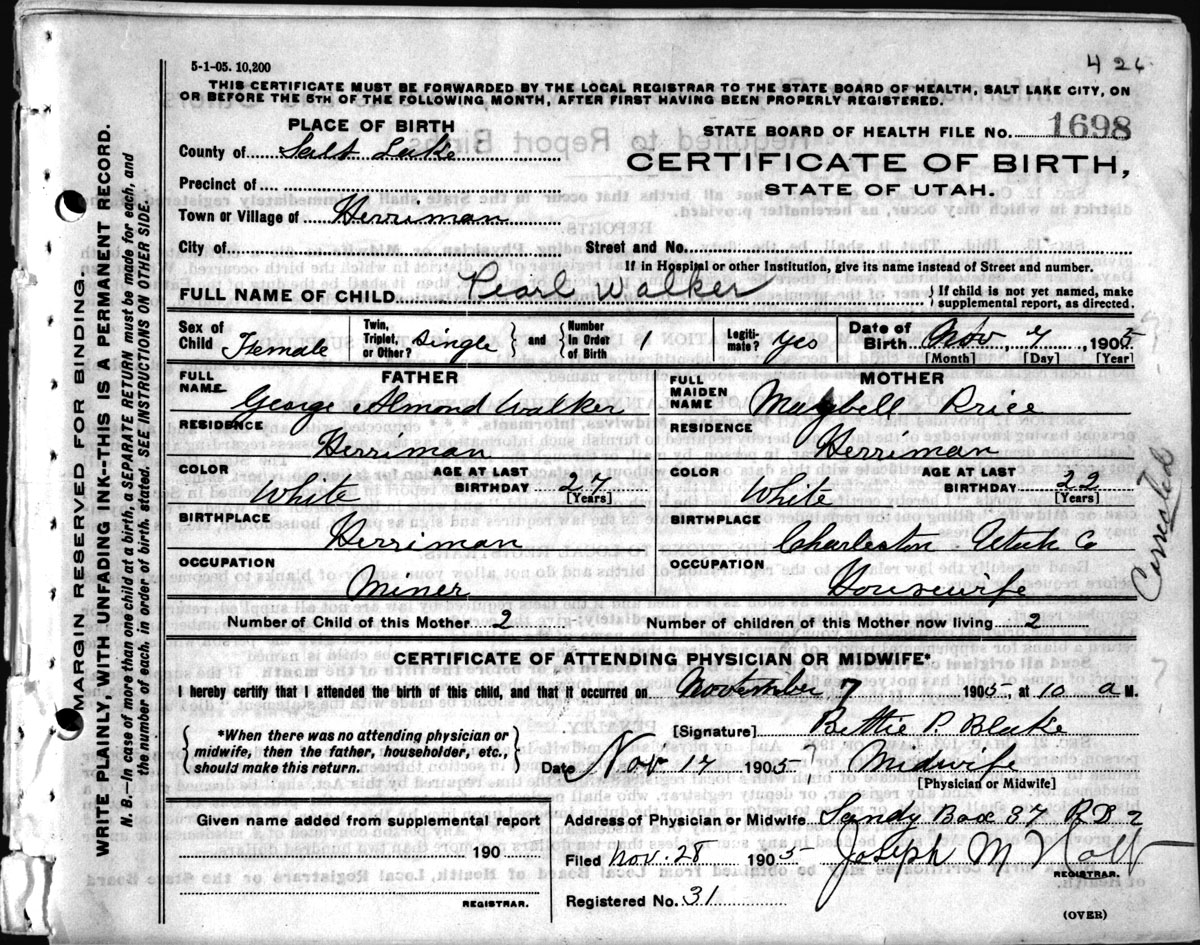 5-1-05. 10,200
426
THIS CERTIFICATE MUST BE FORWARDED BY THE LOCAL REGISTRAR TO THE STATE BOARD OF HEALTH, SALT LAKE CITY, ON
OR BEFORE THE 5TH OF THE FOLLOWING MONTH, AFTER FIRST HAVING BEEN PROPERLY REGISTERED.
PLACE OF BIRTH
STATE BOARD OF HEALTH FILE NO. 1698
County of Salt Lake
CERTIFICATE OF BIRTH,
Precinct of
STATE OF UTAH.
Town or Village of Herriman
City of Street and No.
If in Hospital or other Institution, give its name instead of Street and number.
FULL NAME OF CHILD Pearl Walker { If child is not yet named, make supplemental report, as directed.
Sex of Child Female Twin, Triplet, or Other? Single } and { Number In Order of Birth 1 Legiti-mate? yes Date of Birth Nov. 7, 1905
[Month] [Day] [Year]
FATHER MOTHER
FULL NAME George Almond Walker FULL MAIDEN NAME Maybell Price
RESIDENCE Herriman RESIDENCE Herriman
COLOR White AGE AT LAST BIRTHDAY 27 [Years] COLOR White AGE AT LAST BIRTHDAY 22 [Years]
BIRTHPLACE Herriman BIRTHPLACE Charleston - Utah Co
OCCUPATION Miner OCCUPATION Housewife
Number of Child of this Mother 2 Number of children of this Mother now living 2
CERTIFICATE OF ATTENDING PHYSICIAN OR MIDWIFE*
I hereby certify that I attended the birth of this child, and that it occurred on November 7 1905, at 10 a M.
{ *When there was no attending physician or midwife, then the father, householder, etc., should make this return. }
[Signature] Bettie P. Blake
Date Nov 17 1905 Midwife
[Physician or Midwife]
Given name added from supplemental report
190
REGISTRAR.
Address of Physician or Midwife Sandy Box 37 RD 2
Filed Nov. 28 1905 Joseph M
REGISTRAR.
Registered No. 31
(OVER)
MARGIN RESERVED FOR BINDING.
WRITE PLAINLY, WITH UNFADING INK--THIS IS A PERMANENT RECORD.
N. B.—In case of more than one child at a birth, a SEPARATE RETURN must be made for each, and
the number of each, in order of birth, stated. SEE INSTRUCTIONS ON OTHER SIDE.
Corrected